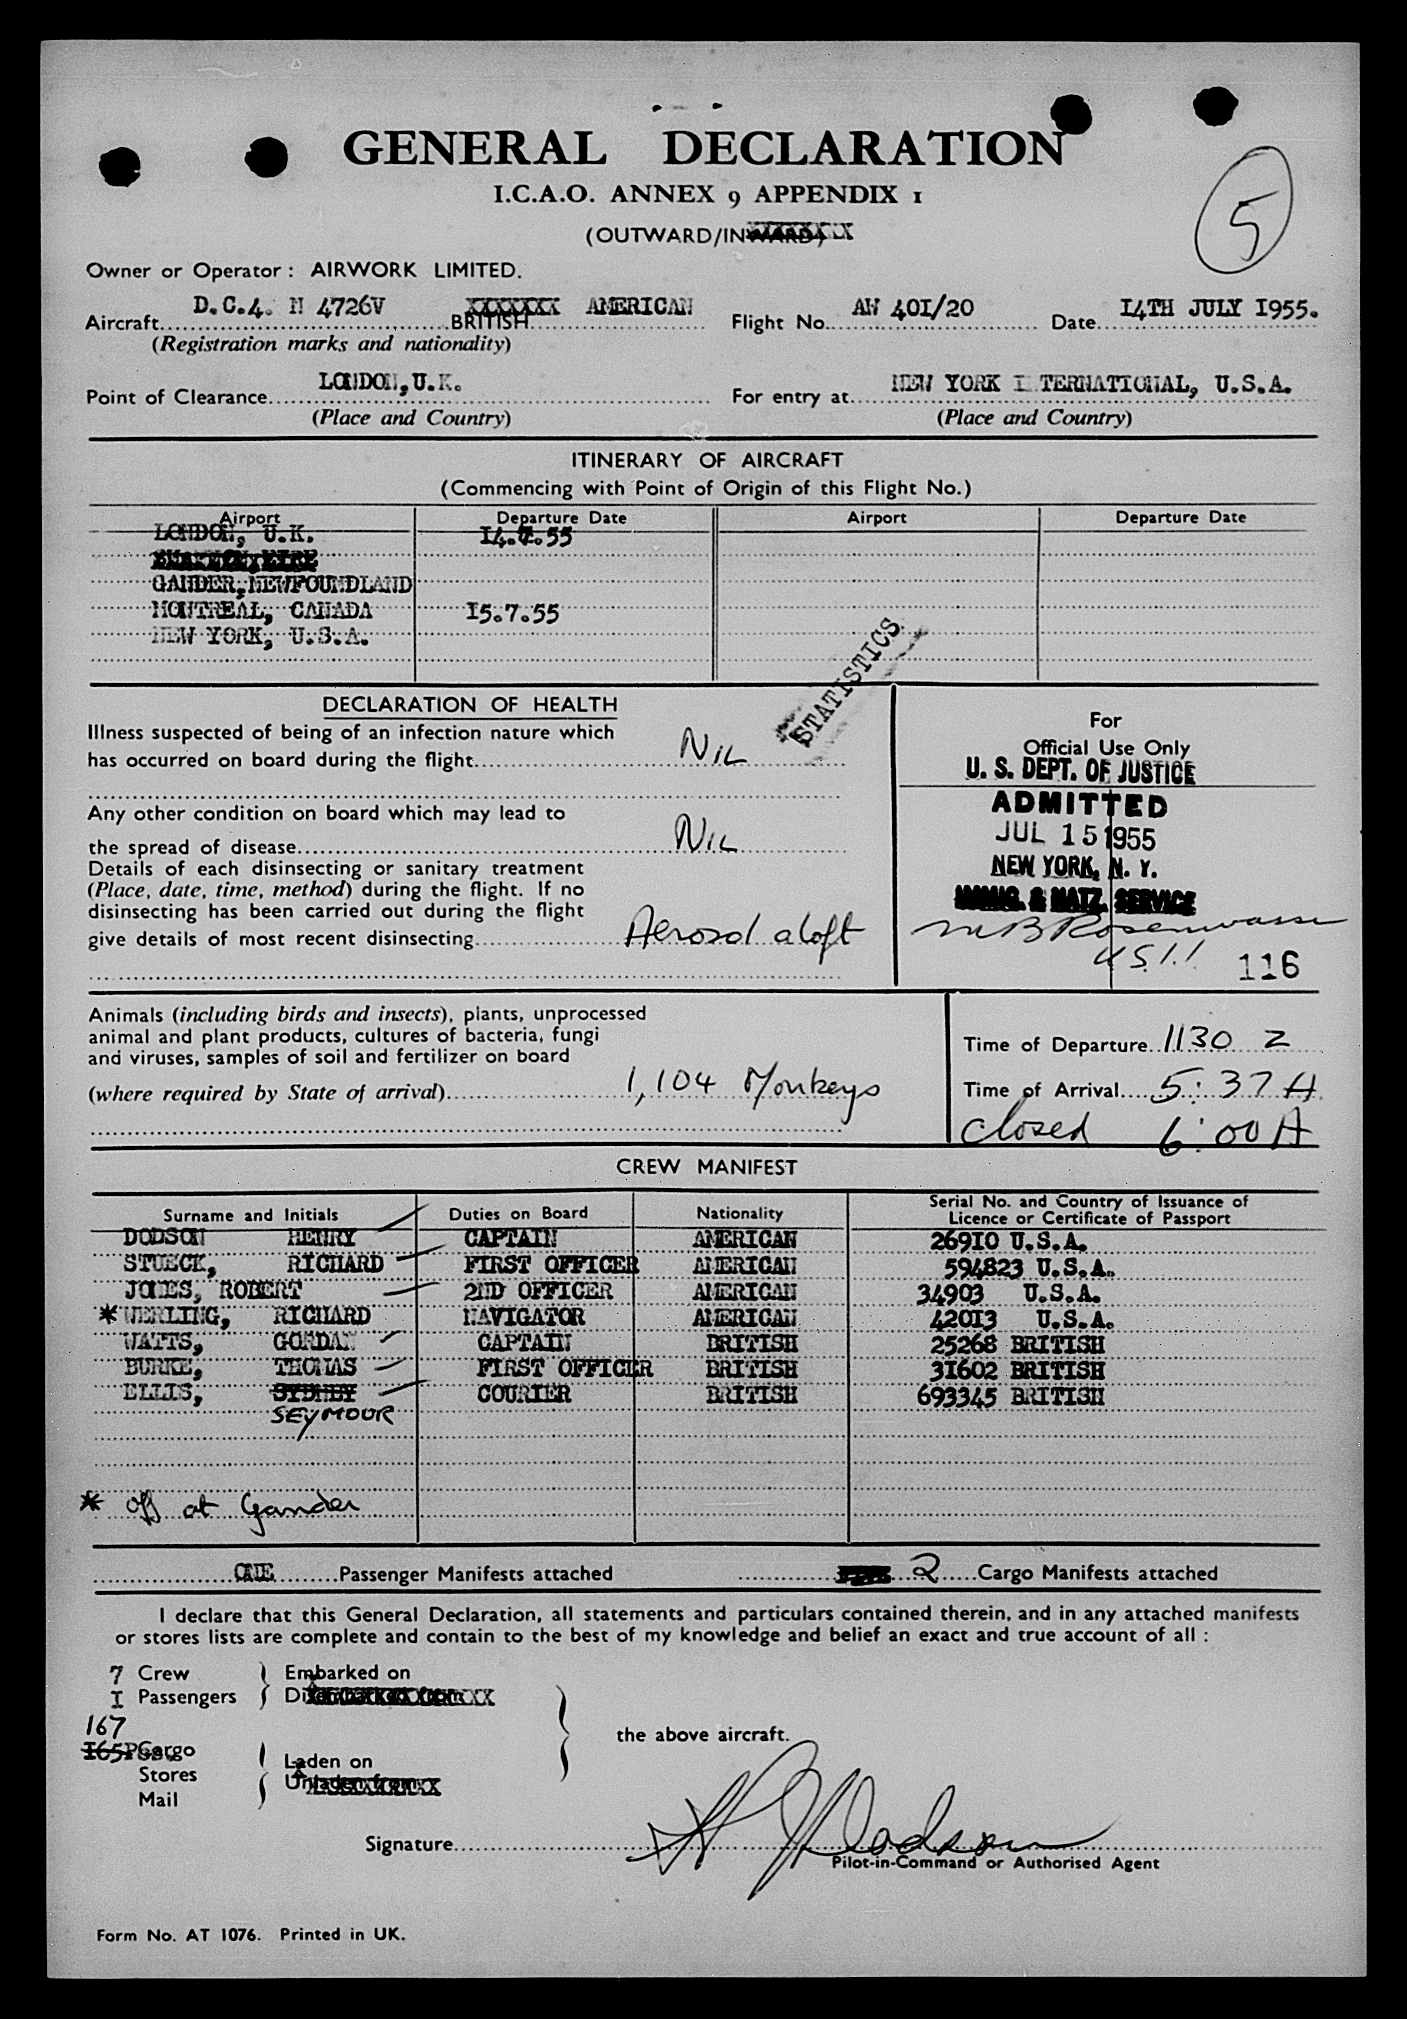 GENERAL DECLARATION
I.C.A.O. ANNEX 9 APPENDIX 1
5
(OUTWARD/INWARD)
Owner or Operator : AIRWORK LIMITED.
Aircraft D.C.4. N 4726V BRITISH XXXXXXX AMERICAN Flight No. AW 40I/20 Date I4TH JULY I955.
(Registration marks and nationality)
Point of Clearance LONDON, U.K. For entry at NEW YORK INTERNATIONAL, U.S.A.
(Place and Country) (Place and Country)
ITINERARY OF AIRCRAFT
(Commencing with Point of Origin of this Flight No.)
Airport Departure Date Airport Departure Date
LONDON, U.K. I4.7.55
GANDER, NEWFOUNDLAND
MONTREAL, CANADA I5.7.55
NEW YORK, U.S.A.
STATISTICS
DECLARATION OF HEALTH
Illness suspected of being of an infection nature which
has occurred on board during the flight NIL
Any other condition on board which may lead to
the spread of disease NIL
Details of each disinsecting or sanitary treatment
(Place, date, time, method) during the flight. If no
disinsecting has been carried out during the flight
give details of most recent disinsecting Aerosol aloft
For
Official Use Only
U. S. DEPT. OF JUSTICE
ADMITTED
JUL 15 1955
NEW YORK, N. Y.
IMMIG. & NATZ. SERVICE
M B Rosenwasser
116
Animals (including birds and insects), plants, unprocessed
animal and plant products, cultures of bacteria, fungi
and viruses, samples of soil and fertilizer on board
(where required by State of arrival) 1,104 Monkeys
Time of Departure 1130 Z
Time of Arrival 5:37 A
closed 6:00 A
CREW MANIFEST
Surname and Initials Duties on Board Nationality Serial No. and Country of Issuance of
Licence or Certificate of Passport
DODSON HENRY CAPTAIN AMERICAN 269I0 U.S.A.
STUECK, RICHARD FIRST OFFICER AMERICAN 594823 U.S.A.
JONES, ROBERT 2ND OFFICER AMERICAN 34903 U.S.A.
* WERLING, RICHARD NAVIGATOR AMERICAN 420I3 U.S.A.
WATTS, GORDAN CAPTAIN BRITISH 25268 BRITISH
BURKE, THOMAS FIRST OFFICER BRITISH 3I602 BRITISH
ELLIS, SYDNEY COURIER BRITISH 693345 BRITISH
SEYMOUR
* off at Gander
ONE Passenger Manifests attached 2 Cargo Manifests attached
I declare that this General Declaration, all statements and particulars contained therein, and in any attached manifests
or stores lists are complete and contain to the best of my knowledge and belief an exact and true account of all :
7 Crew Embarked on
I Passengers Disembarked from
the above aircraft.
167
I65Pcs. Cargo
Laden on
Stores
Unladen from
Mail
Signature H J Dodson
Pilot-in-Command or Authorised Agent
Form No. AT 1076. Printed in UK.